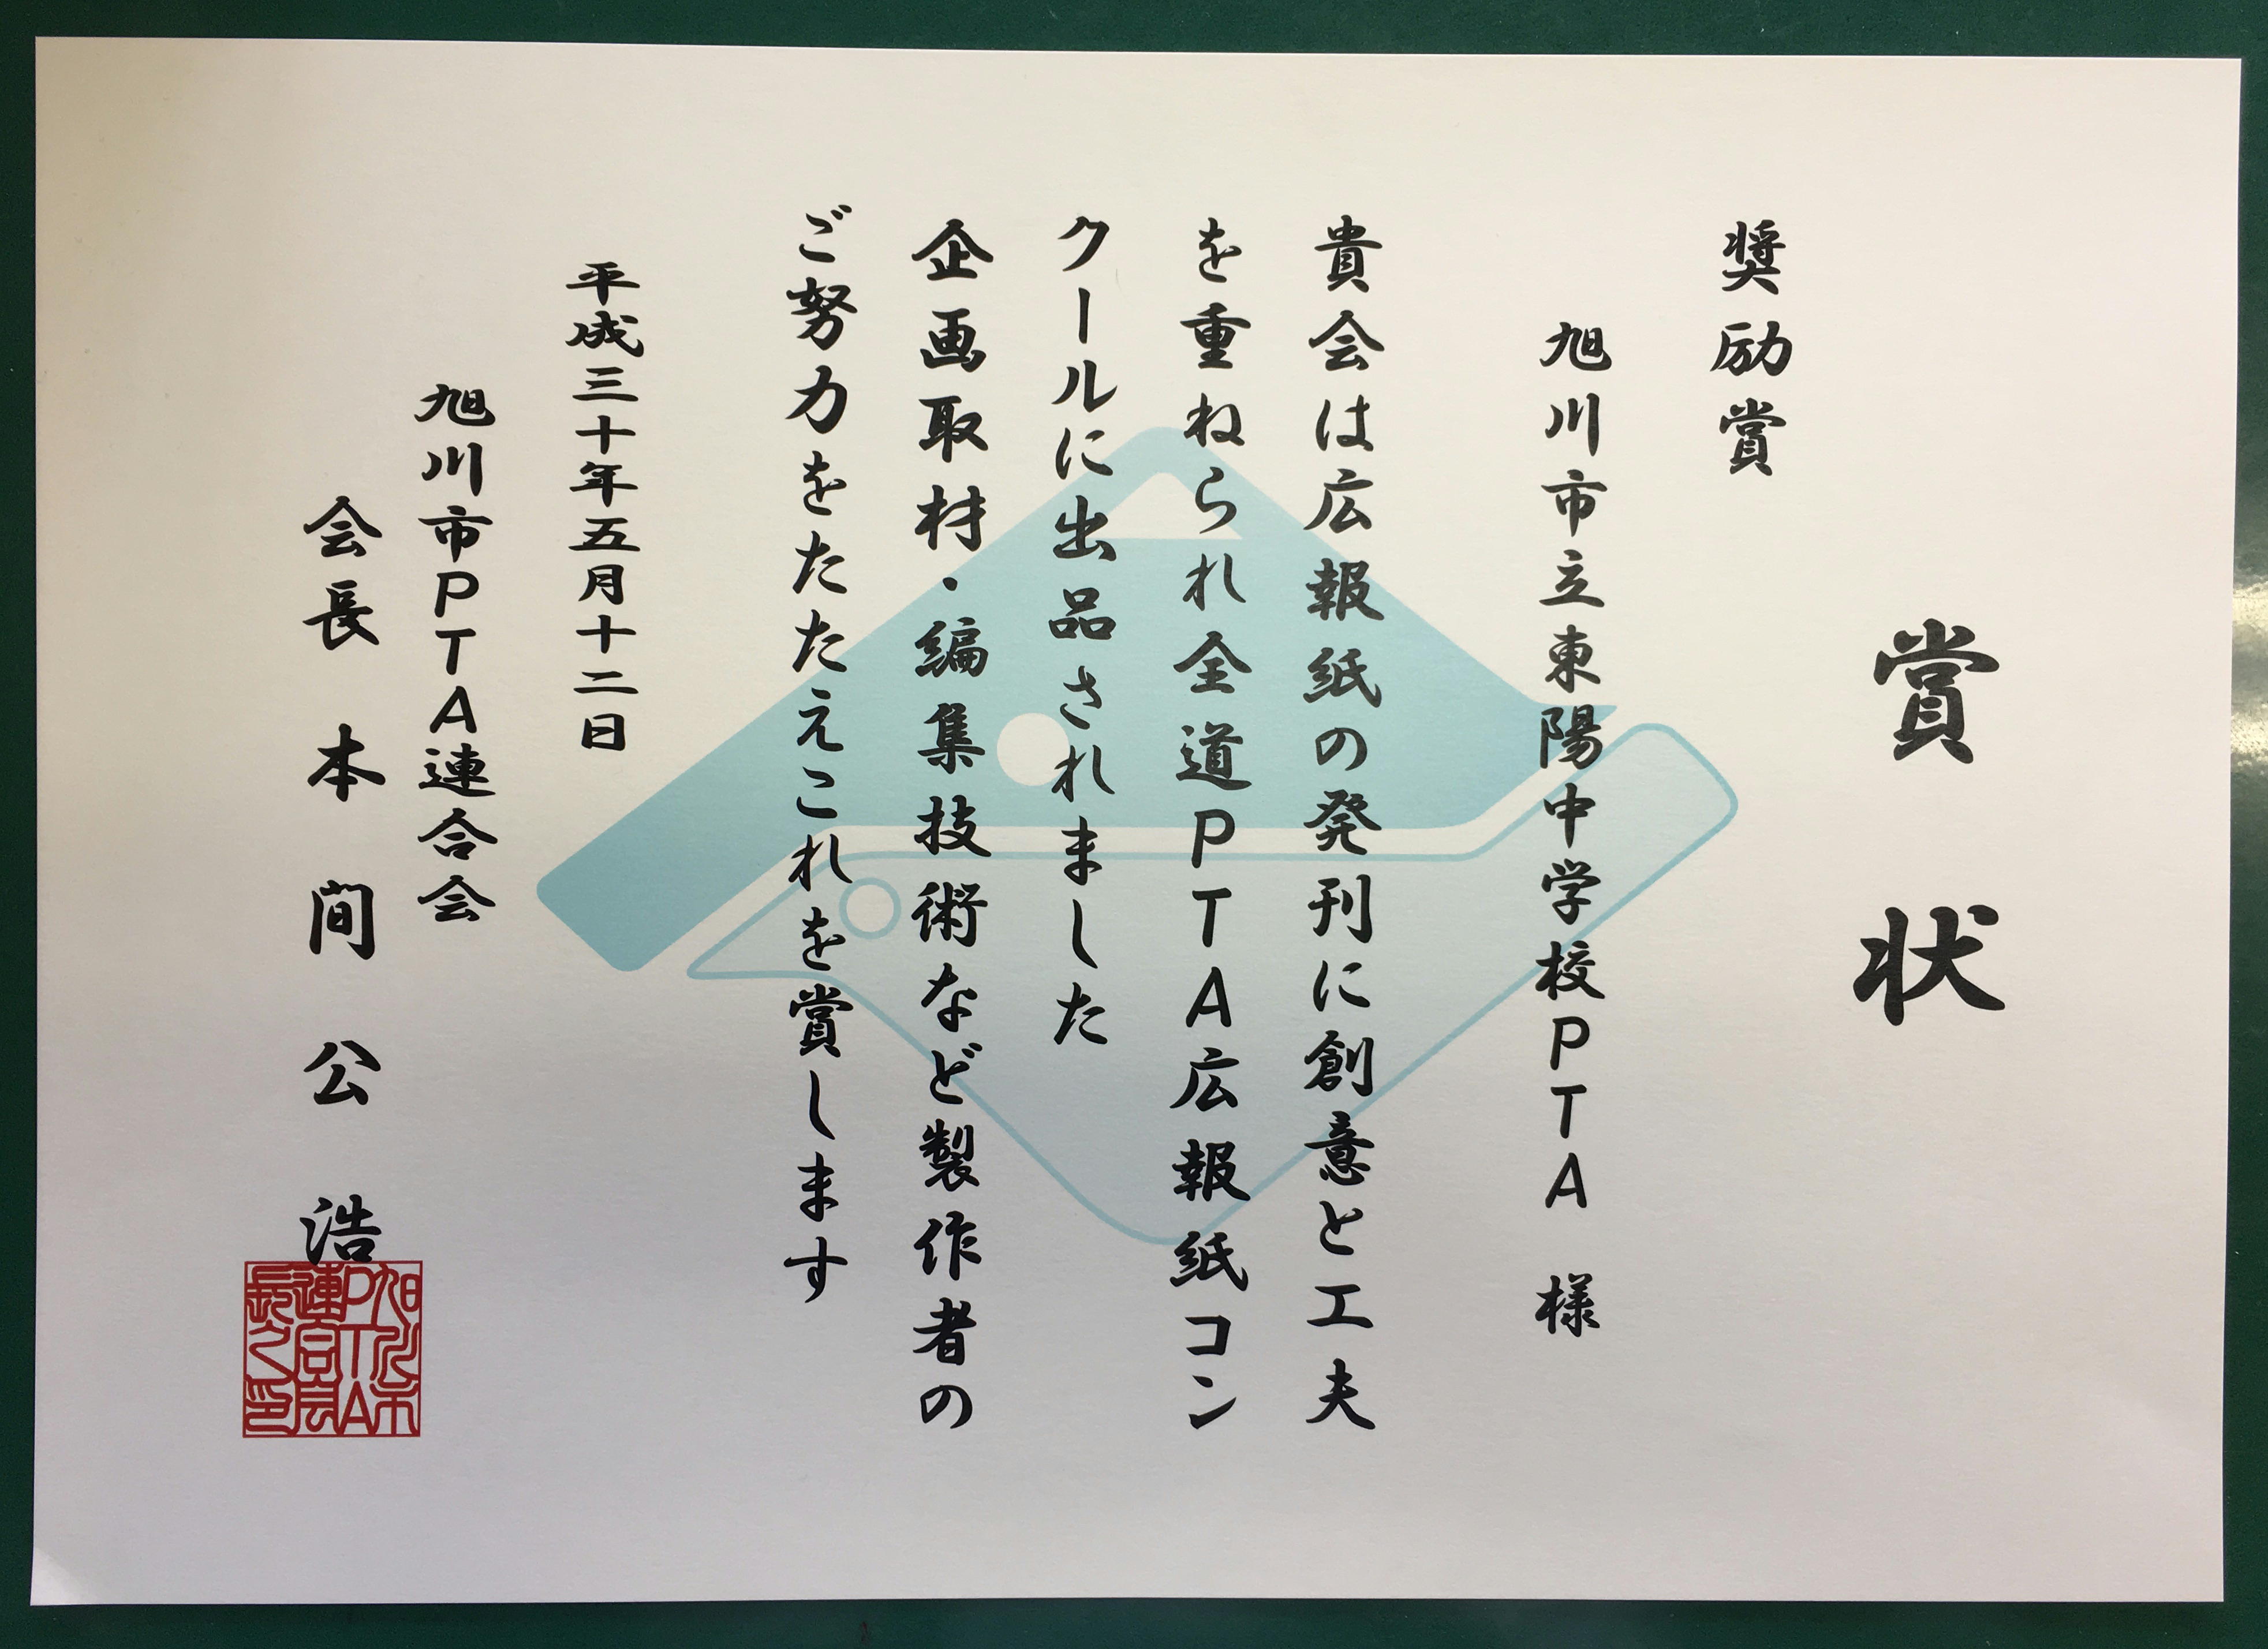 賞状
奨励賞
旭川市立東陽中学校PTA 様
貴会は広報紙の発刊に創意と工夫
を重ねられ全道PTA広報紙コン
クールに出品されました
企画取材・編集技術など製作者の
ご努力をたたえこれを賞します
平成三十年五月十二日
旭川市PTA連合会
会長 本間公浩
旭川市
PTA
連合会
長之印